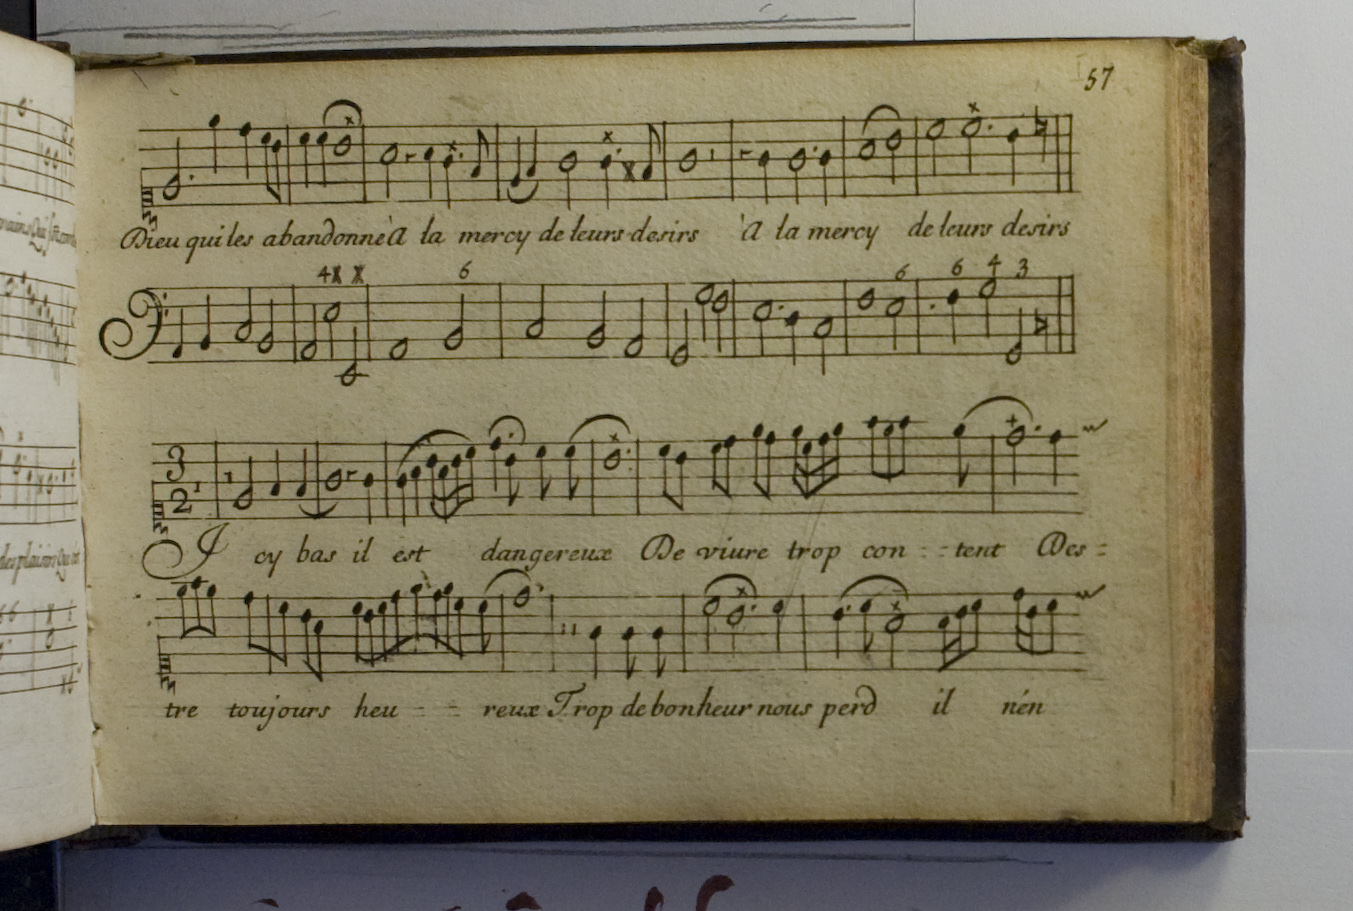 57
Dieu qui les abandonne À la mercy de leurs desirs À la mercy de leurs desirs
4x x 6 6 6 4 3
3
2
Jcy bas il est dangereux De viure trop con - - tent Des -
tre toujours heu - - reux Trop de bonheur nous perd il nén